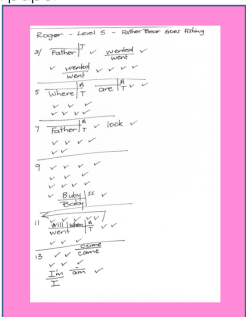 Roger - Level 5 - Father Bear Goes Fishing
3/ Father | T ✓ wented ✓
went
✓ wented ✓ ✓ ✓ ✓
went
5 Where | A are | A ✓ ✓
T T
✓ ✓ ✓
✓ ✓ ✓ ✓
7 Father | A ✓ look ✓
T
✓ ✓ ✓ ✓
✓ ✓
9 ✓ ✓ ✓ ✓
✓ ✓ ✓
✓ ✓ ✓ ✓
✓ Buby | sc ✓
Baby
11 ✓ ✓ ✓ ✓ ✓
Will | | A ✓ ✓
went T
✓ ✓ ✓
13 ✓ ✓ came
✓ ✓ ✓
I'm am ✓
I